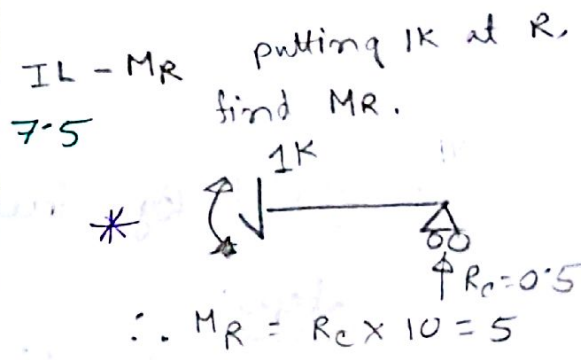 IL - MR putting 1K at R,
find MR.
7.5
1K
*
Rc=0.5
∴ MR = Rc × 10 = 5